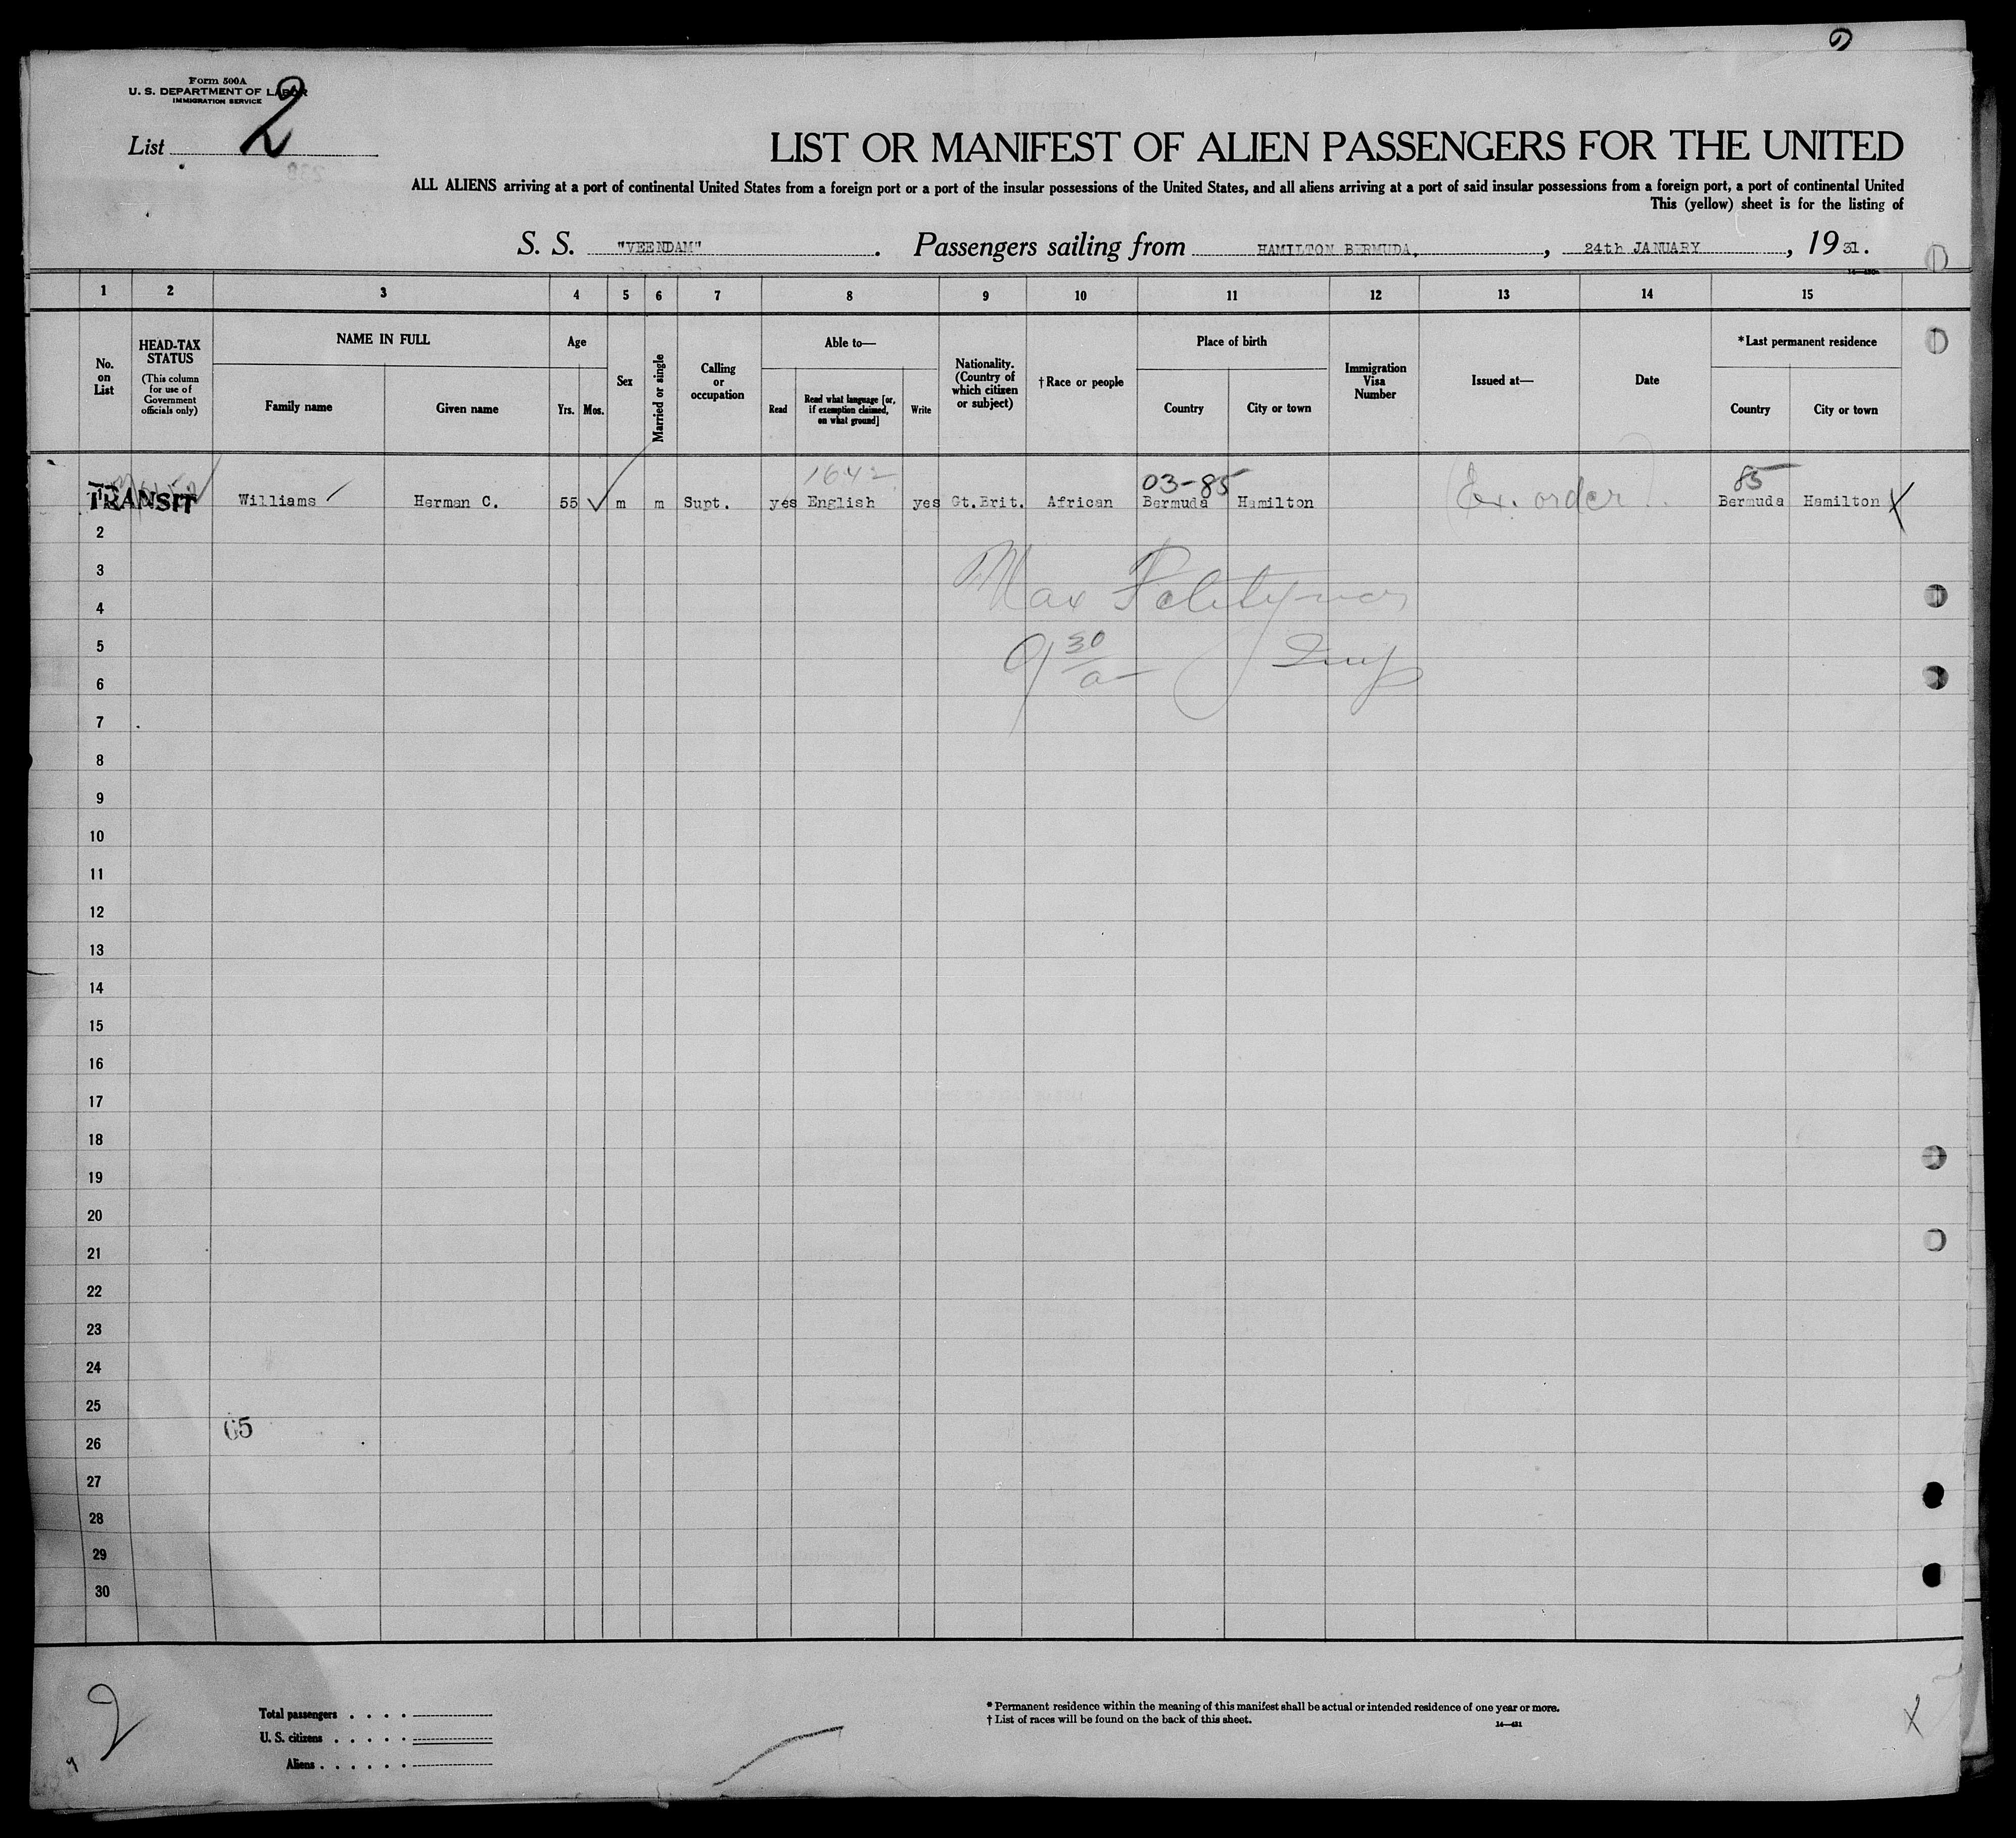 Form 500A
U. S. DEPARTMENT OF LABOR
IMMIGRATION SERVICE
List 2
LIST OR MANIFEST OF ALIEN PASSENGERS FOR THE UNITED
ALL ALIENS arriving at a port of continental United States from a foreign port or a port of the insular possessions of the United States, and all aliens arriving at a port of said insular possessions from a foreign port, a port of continental United
This (yellow) sheet is for the listing of
S. S. "VEENDAM" . Passengers sailing from HAMILTON BERMUDA, , 24th JANUARY , 19 31.
1 2 3 4 5 6 7 8 9 10 11 12 13 14 15
No. on List
HEAD-TAX STATUS
(This column for use of Government officials only)
NAME IN FULL
Family name
Given name
Age
Yrs. Mos.
Sex
Married or single
Calling or occupation
Able to—
Read
Read what language [or, if exemption claimed, on what ground]
Write
Nationality. (Country of which citizen or subject)
†Race or people
Place of birth
Country
City or town
Immigration Visa Number
Issued at—
Date
*Last permanent residence
Country
City or town
1642 03-85 85
TRANSIT Williams Herman C. 55 m m Supt. yes English yes Gt.Brit. African Bermuda Hamilton Ex. order Bermuda Hamilton X
2
3
Max
4
5
9 30
a
6
7
8
9
10
11
12
13
14
15
16
17
18
19
20
21
22
23
24
25
65
26
27
28
29
30
2
Total passengers . . . .
U. S. citizens . . . . .
Aliens . . . . . .
* Permanent residence within the meaning of this manifest shall be actual or intended residence of one year or more.
† List of races will be found on the back of this sheet.
14—431
X